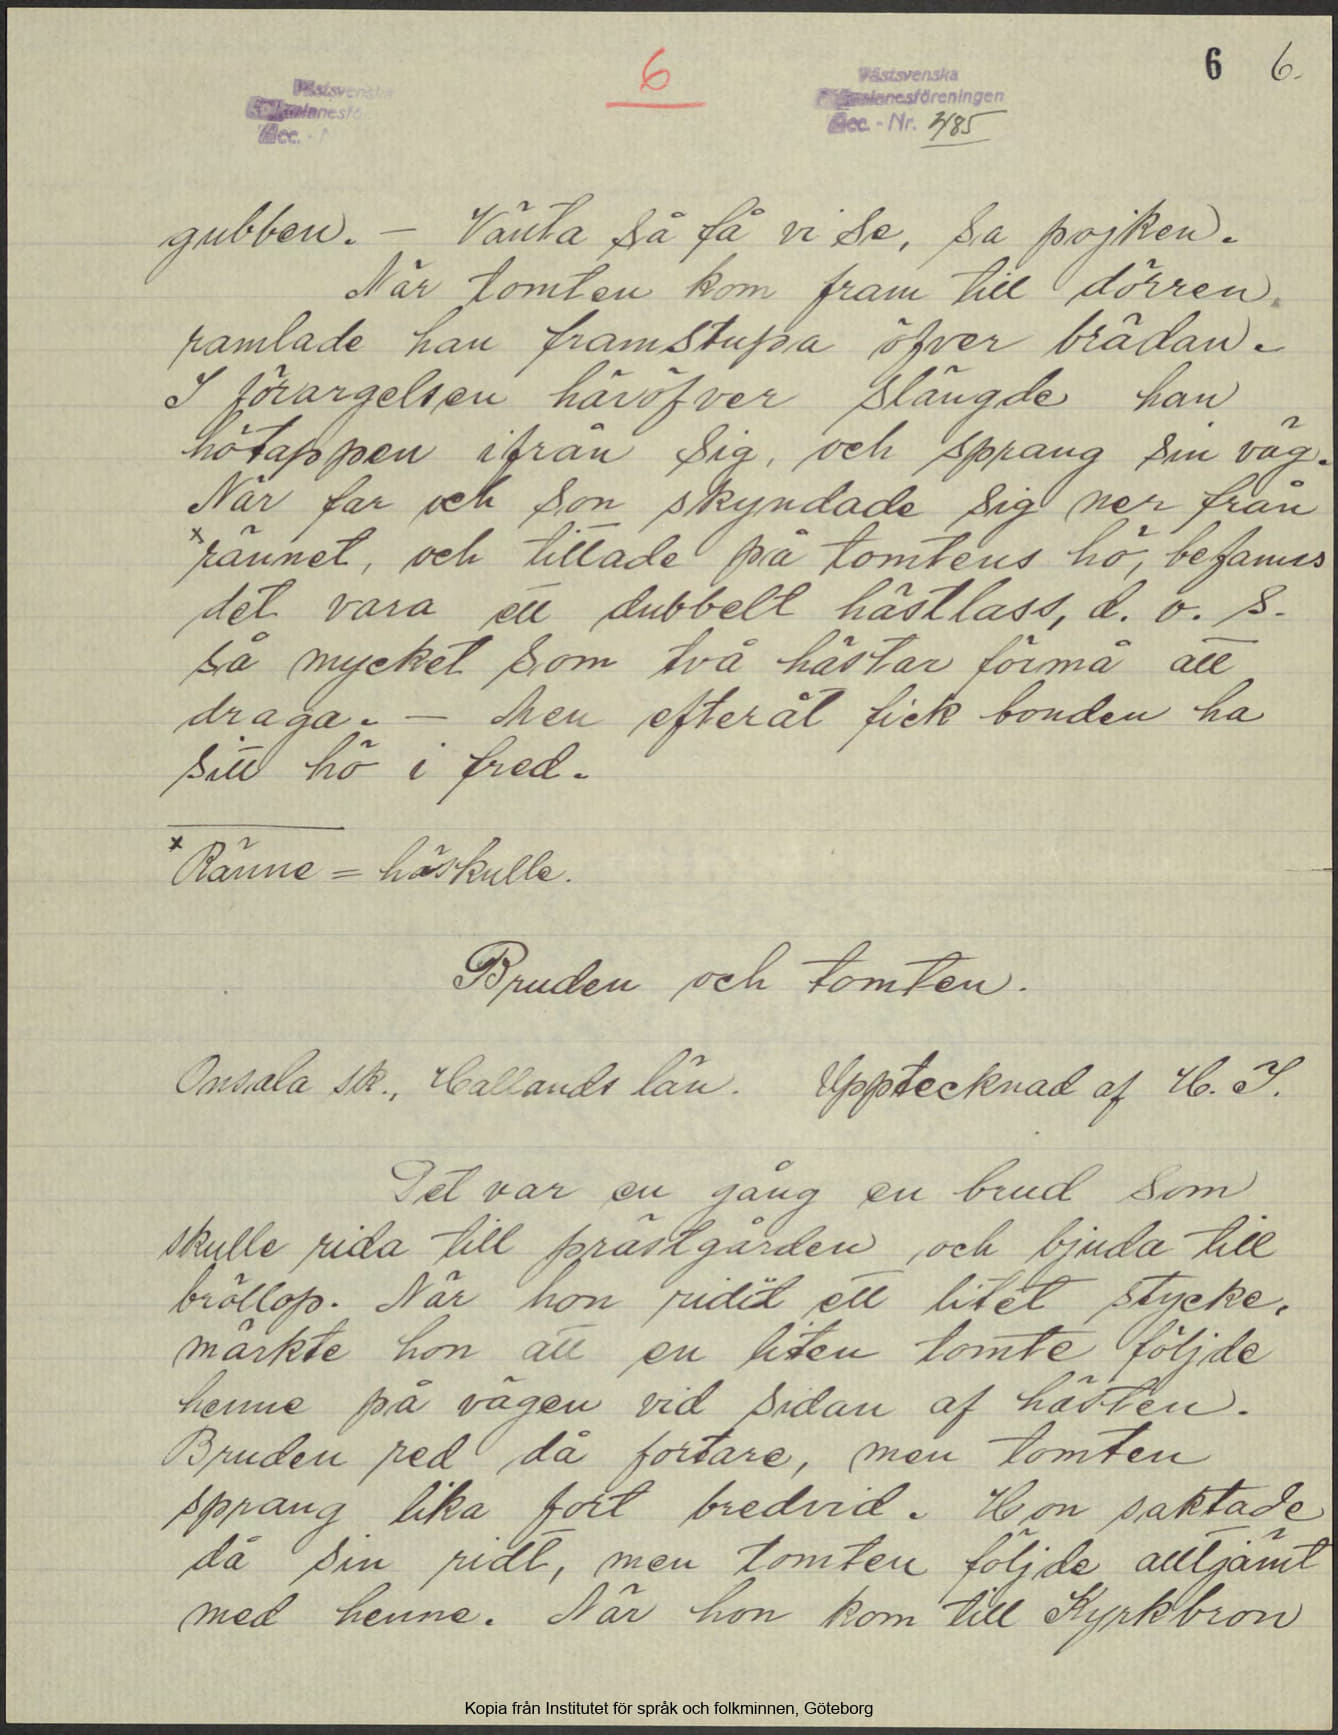 6
6 6.
Västsvenska
Västsvenska
Folkminnesföreningen
Acc. - Nr. 2185
gubben. — Vänta så få vi se, sa pojken.
När tomten kom fram till dörren
ramlade han framstupa öfver brädan.
I förargelsen häröfver slängde han
hötappen ifrån sig, och sprang sin väg.
När far och son skyndade sig ner från
x rännet, och tillade på tomtens hö, befanns
det vara ett dubbelt hästlass, d. v. s.
så mycket som två hästar förmå att
draga. — Men efteråt fick bonden ha
sitt hö i fred.
x Ränne = höskulle.
Bruden och tomten.
Onsala sk., Hallands län. Upptecknad af H. I.
Det var en gång en brud som
skulle rida till prästgården och bjuda till
bröllop. När hon ridit ett litet stycke,
märkte hon att en liten tomte följde
henne på vägen vid sidan af hästen.
Bruden red då fortare, men tomten
sprang lika fort bredvid. Hon saktade
då sin ridt, men tomten följde alltjämt
med henne. När hon kom till Kyrkbron
Kopia från Institutet för språk och folkminnen, Göteborg